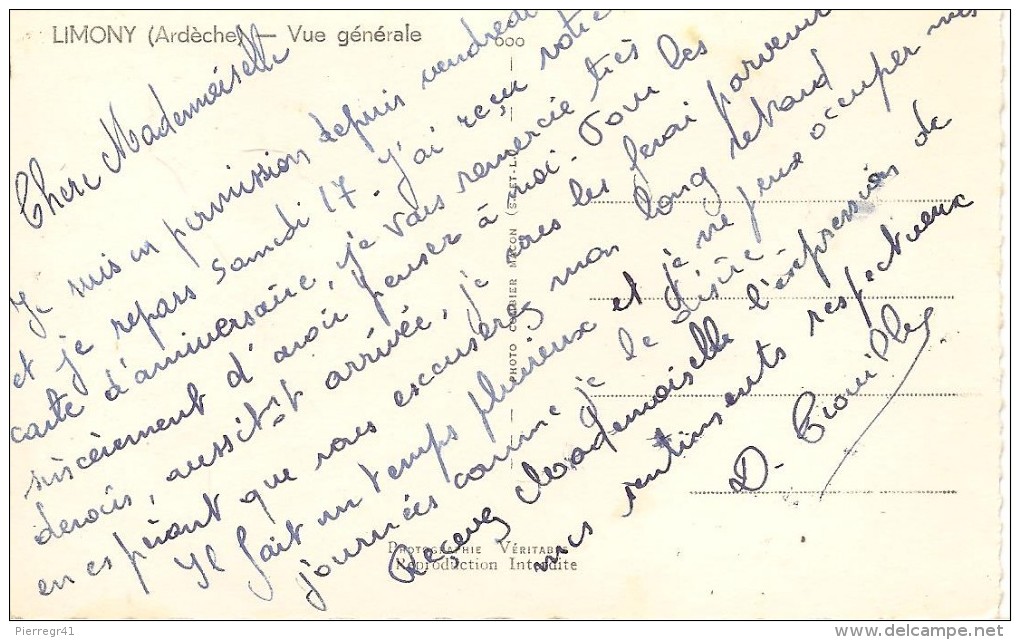 LIMONY (Ardèche) — Vue générale
600
Chère Mademoiselle
Je suis en permission depuis vendredi
et je repars Samedi 17. J'ai reçu votre
carte d'anniversaire, je vous remercie très
sincèrement d'avoir penser à moi. Pour les
devoirs, aussitôt arrivée, je vous les ferai parvenir
en espérant que vous excuserez mon long retard
Il fait un temps pluvieux et je ne peux occuper mes
journées comme je le désire.
Recevez Mademoiselle l'expression de
mes sentiments respectueux
D.
PHOTO COMBIER MACON (S.-ET-L.)
PHOTOGRAPHIE VÉRITABLE
Reproduction Interdite
Pierregr41
delcampe.net